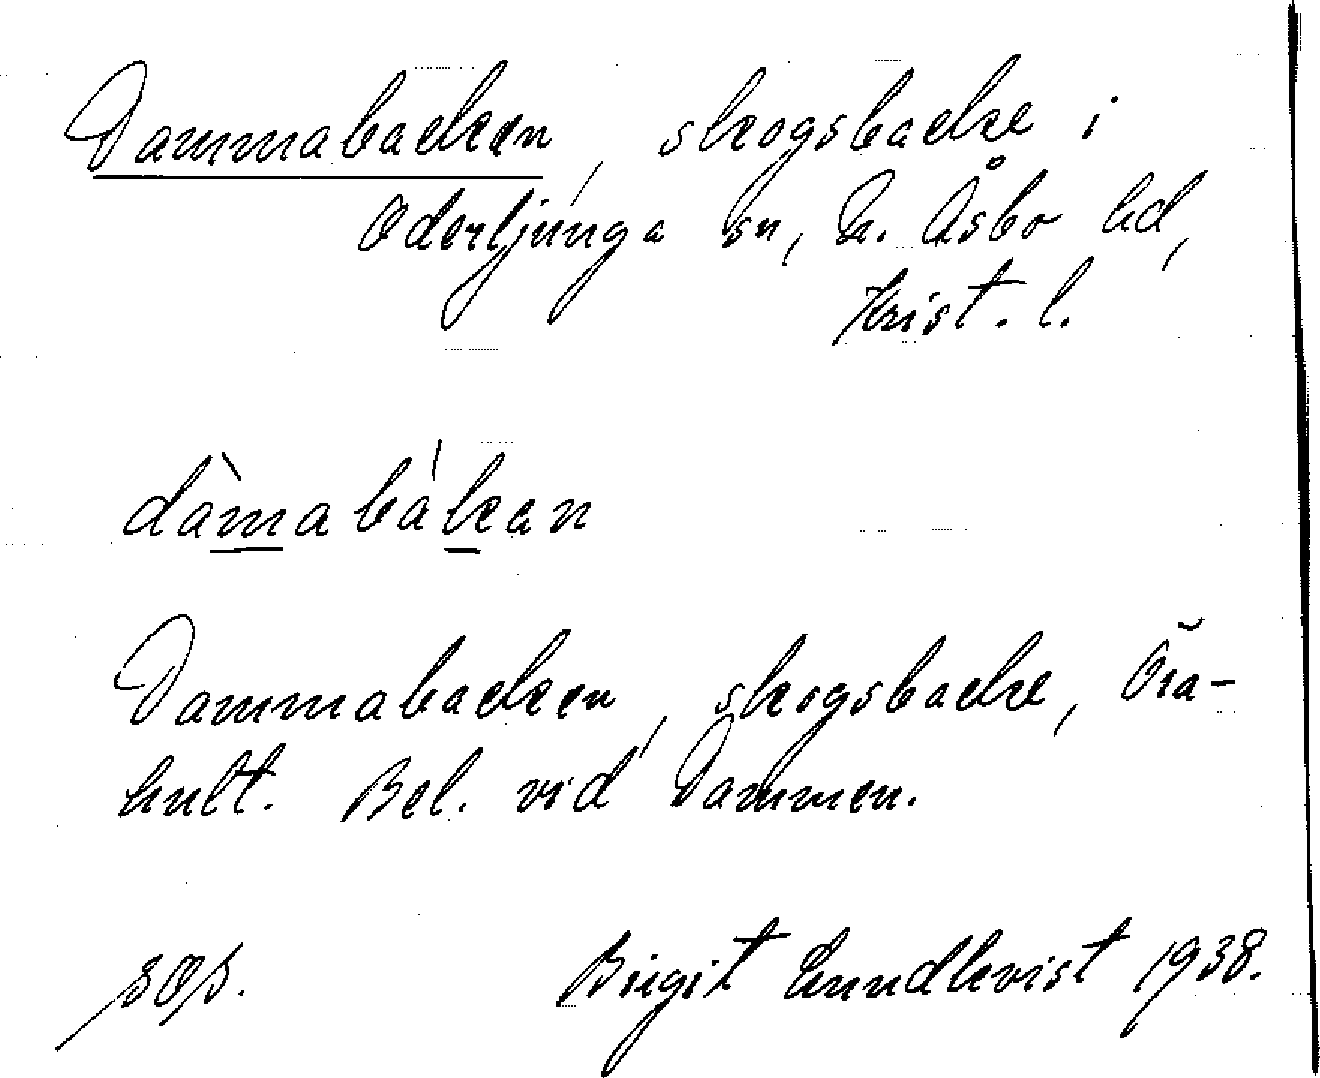 Dammabacken, skogsbacke i
Oderljunga sn, N. Åsbo hd,
Krist. l.
dàmabákan
Dammabacken, skogsbacke, Öra-
hult. Bel. vid Dammen.
Birgit Lundkvist 1938.